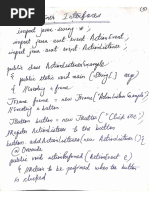 Listener Interfaces
import javax.swing.*;
import java.awt.event.ActionEvent;
import java.awt.event.ActionListener;
public class ActionListenerExample
{ public static void main (String[] args)
{
JFrame frame = new JFrame("ActionListenerExample")
//Creating a button
JButton button = new JButton("Click me");
//Register ActionListener to the button
button.addActionListener(new ActionListener(){
@Override
public void actionPerformed(ActionEvent e)
{ //Action to be performed when the button
is clicked